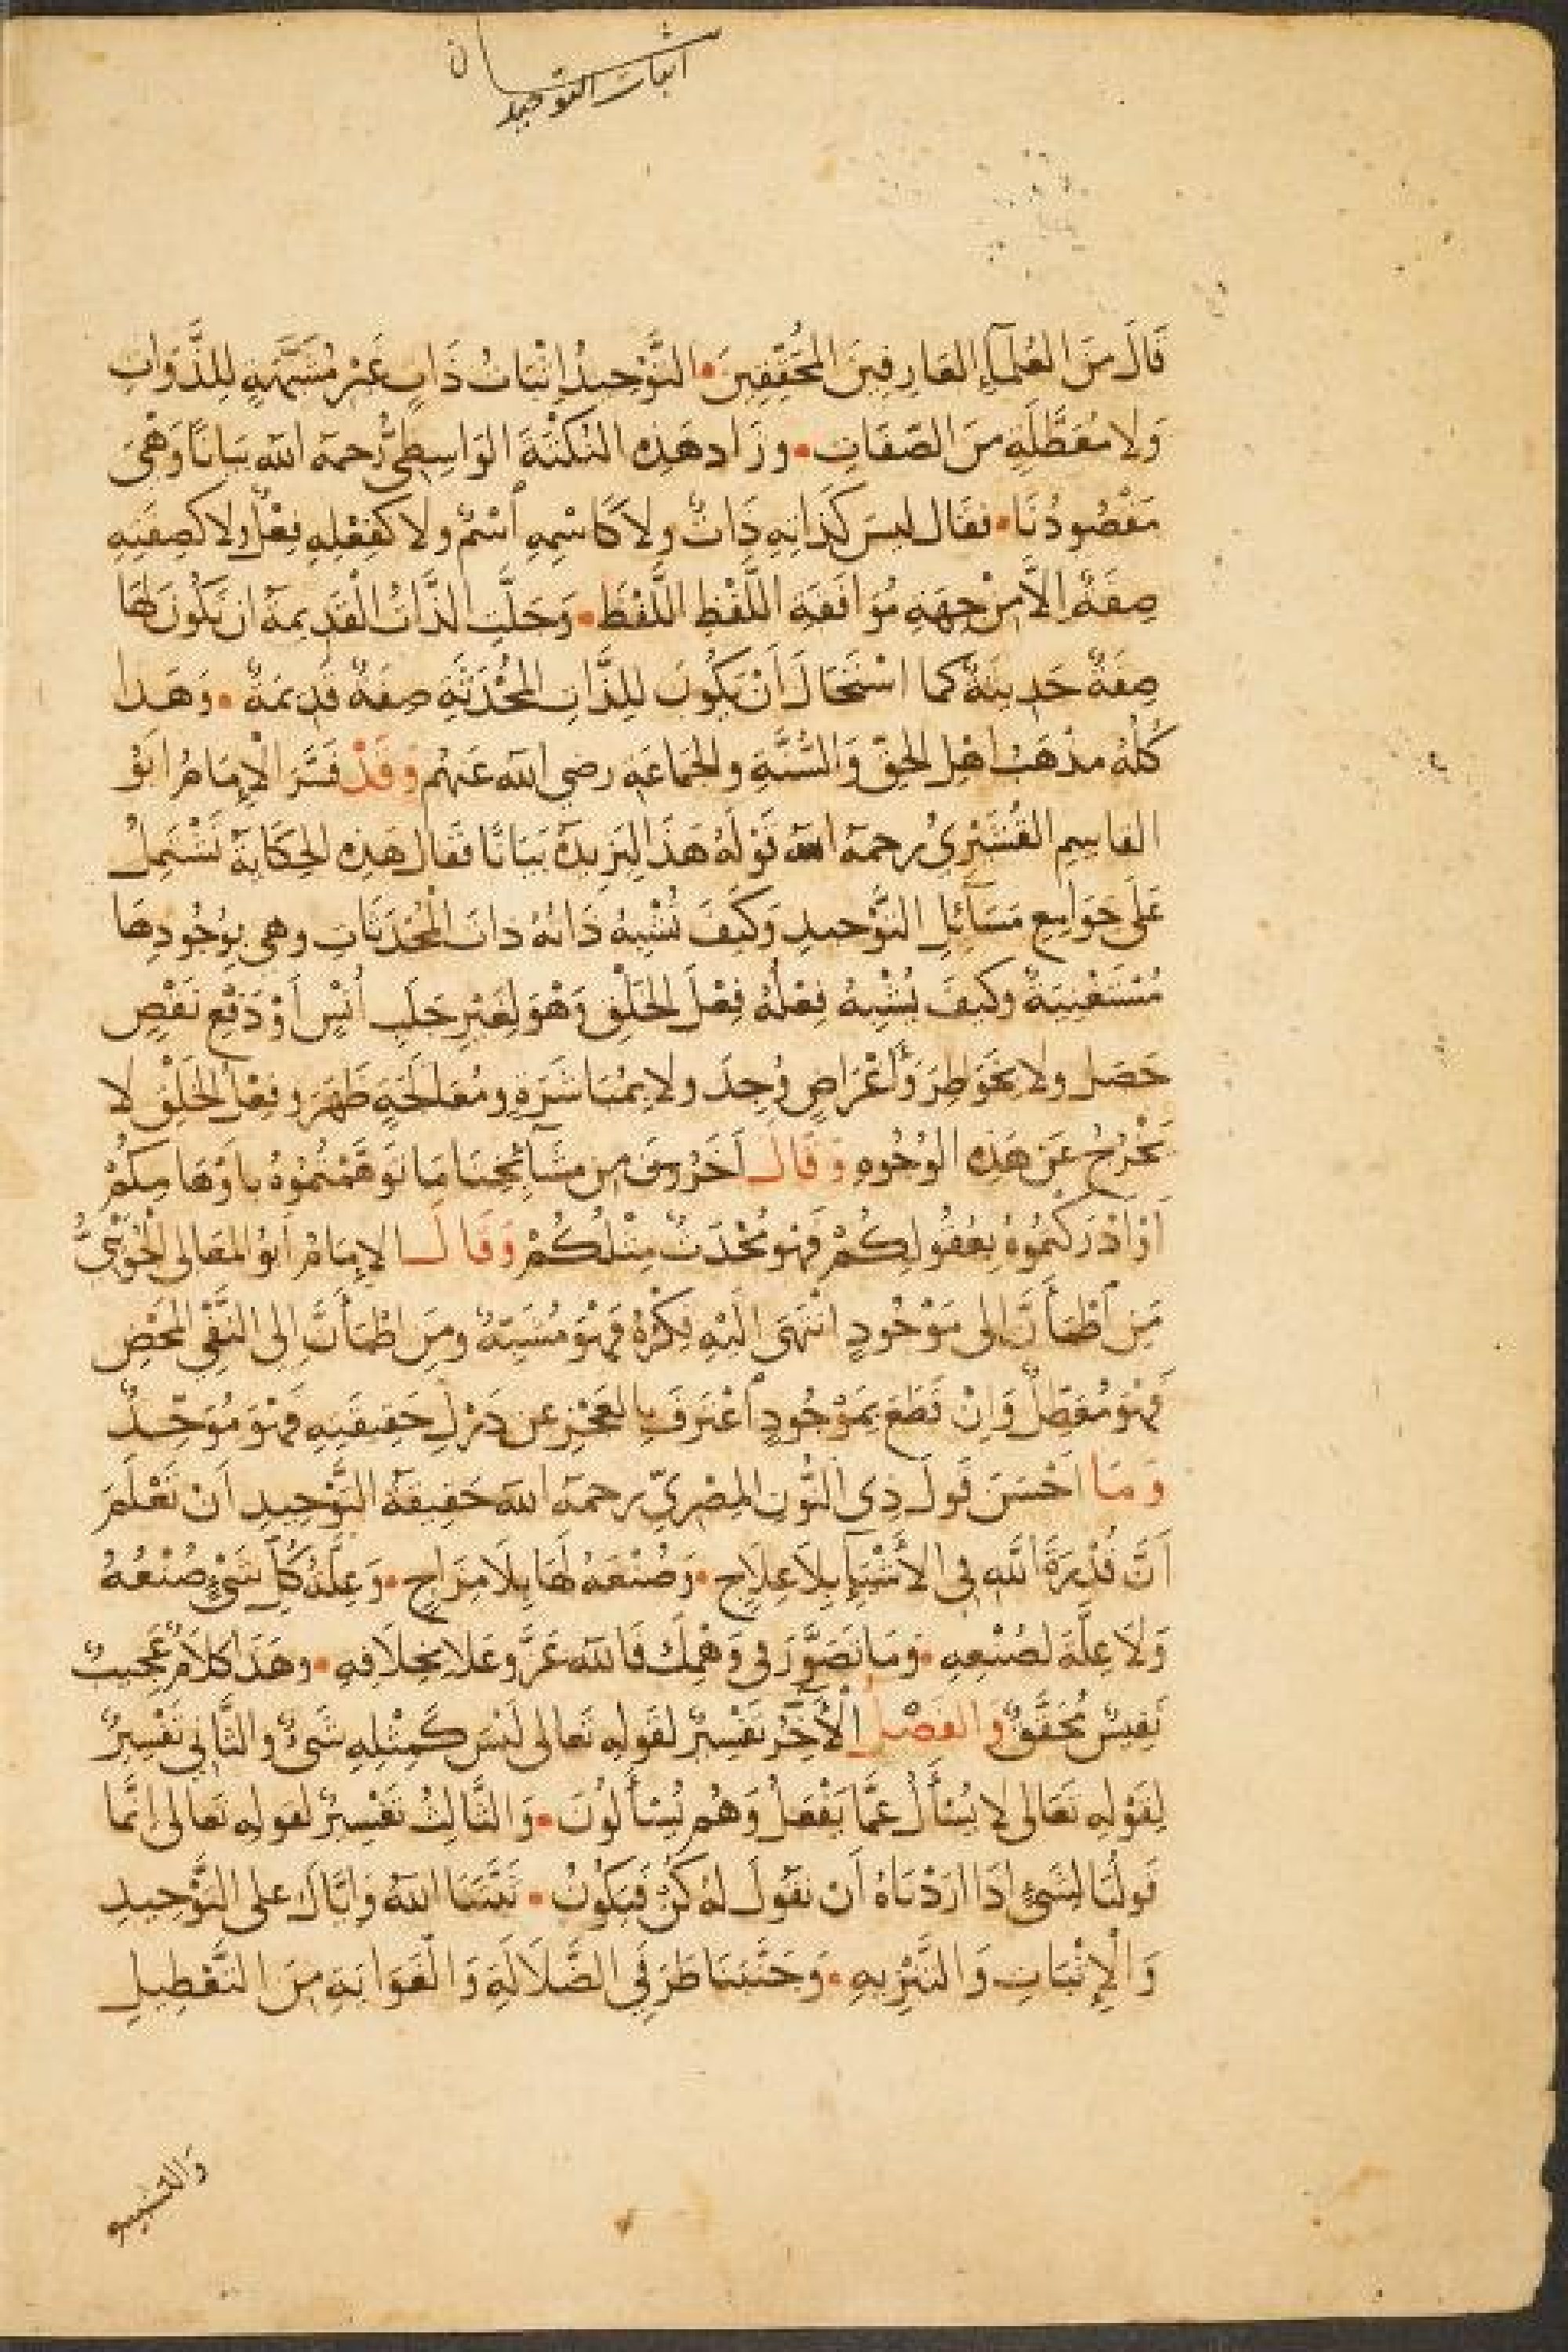 شان
اثبات التوحيد
قَالَ مِنَ العُلَمَآءِ العَارِفِينَ المُحَقِّقِينَ • التَّوْحِيدُ إِثْبَاتُ ذَاتٍ غَيْرِ مُشَبَّهَةٍ لِلذَّوَاتِ
وَلا مُعَطَّلَةٍ مِنَ الصِّفَاتِ • وزَاد هَذِهِ النُكْتَةَ الوَاسِطِىُّ رَحمهَ الله بَيَانًا وَهْىَ
مَقْصُودُنَا • فقَال ليسَ كَذَاتِهِ ذَاتٌ ولاَ كَاسْمِهِ اسْمٌ ولاَ كَفِعْلِهِ فِعْلٌ ولا كَصِفَتِهِ
صِفَةٌ إلاَّ مِنْ جِهَةِ مُوَافَقَةِ اللَّفْظِ اللَّفْظَ • وَجَلَّتِ الذَّاتُ الْقَدِيمَةُ ان يَكُونَ لهَا
صِفَةٌ حَدِيثَةٌ كما اسْتَحَالَ أَنْ يَكُونَ لِلذَّاتِ المُحْدَثَةِ صِفَةٌ قَدِيمَةٌ • وَهَذا
كُلُهُ مذْهَبُ اهْلِ الحَقّ وَالسُّنَّةِ والجَمَاعَةِ رضي الله عَنْهُم وَقَدْ فَسَّرَ الْإِمَامُ ابَوُ
القاسِمِ القُشَيْرِىُّ رحمهَ الله قَوْلَهُ هَذَا لِيَزِيدَهُ بَيَانًا فَقَال هَذِهِ الحِكَايَةُ تَشْتَمِلُ
عَلَى جَوَامِعِ مَسَآئِلِ التَّوْحيدِ وَكَيفَ تُشْبِهُ ذَاتُهُ ذاتَ المُحْدَثَاتِ وهى بِوُجُودِهَا
مُسْتَغْنِيَةٌ وكيفَ يُشْبِهُ فِعْلُهُ فِعْلَ الخَلْقِ وَهْوَ لِغَيْرِ جَلَبِ أُنْسٍ أَوْ دَفْعِ نَقْصٍ
حَصَل ولا بِخَوَاطِرَ وَأَغْرَاضٍ وُجِدَ ولا بِمُبَاشَرَةٍ ومُعَالَجَةٍ ظَهَرَ وفِعْلُ الخَلْقِ لا
يَخْرُجُ عَنْ هَذِهِ الوُجُوهِ وَقَالَ آخَرُونَ مِن مشَآئِخِنَا مَا تَوَهَّمْتُمُوْهُ باَوْهَامِكُمْ
اَوْ ادْرَكْتُمُوهُ بِعُقُولِكُمْ فَهْوَ مُحْدَثٌ مِثْلُكُمْ وَقَالَ الإمَامُ ابَوُ المَعَالى الْجُوَيْنِىُّ
مَنِ اَطْمَأَنَّ الى مَوْجُودٍ انْتَهَى الَيْهِ فِكْرُهُ فَهْوَ مُشَبِّهٌ ومَنِ اطْمَأَنَّ إلى النَّفْىِ المَحْضِ
فَهْوَ مُعَطِّلٌ وَإنْ قَطَعَ بِمَوْجُودٍ اَعْتَرَفَ بالعَجْزِ عن دَرْكِ حَقِيقَتِهِ فهْوَ مُوَحِّدٌ
وَمَا اَحْسَنَ قَولَ ذِى النُّونِ المِصْرِىِّ رحمهَ الله حَقِيقَةُ التَّوْحِيدِ اَنْ تَعْلَمَ
اَنَّ قُدْرَةَ اللَّهِ فِى الأَشْيَآءِ بِلاَ عِلاَجٍ • وَصُنْعَهُ لَهَا بِلَا مِزَاجٍ • وَعِلَّةُ كُلِّ شَىْءٍ صُنْعُهُ
وَلاَ عِلَّةَ لصُنْعِهِ • وَمَا تَصَوَّرَ فى وَهْمِكَ فَالله عَزَّ وعَلا بِخلاَفِهِ • وهَذَا كلاَمٌ عَجِيبٌ
نَفِيسٌ مُحَقَّقٌ وَالفصْلُ الأَخَرُ تَفْسِيرٌ لقَولِهِ تَعالى لَيْسَ كَمِثْلِهِ شَىْءٌ والثَّانِى تَفْسِيرٌ
لِقَوْلِهِ تَعَالى لا يُسْأَلُ عَمَّا يَفْعَلُ وَهُم يُسْأَلُونَ • وَالثَّالِثُ تَفْسِيرٌ لقولِهِ تعَالى إنَّما
قَولُنَا لِشَىْءٍ اذَا ارَدْنَاهُ أَن نقُولَ لهُ كُنْ فَيَكُونُ • ثَبَّتَنَا اللهُ وَايَّاكَ على التَّوْحِيدِ
وَالْإِثْبَاتِ وَالتَّنْزِيهِ • وَجَنَّبَنَا طَرَفَىِ الضَّلاَلَةِ وَالْغَوَايَةِ مِنَ التَّعْطِيلِ
وَالتشبيه